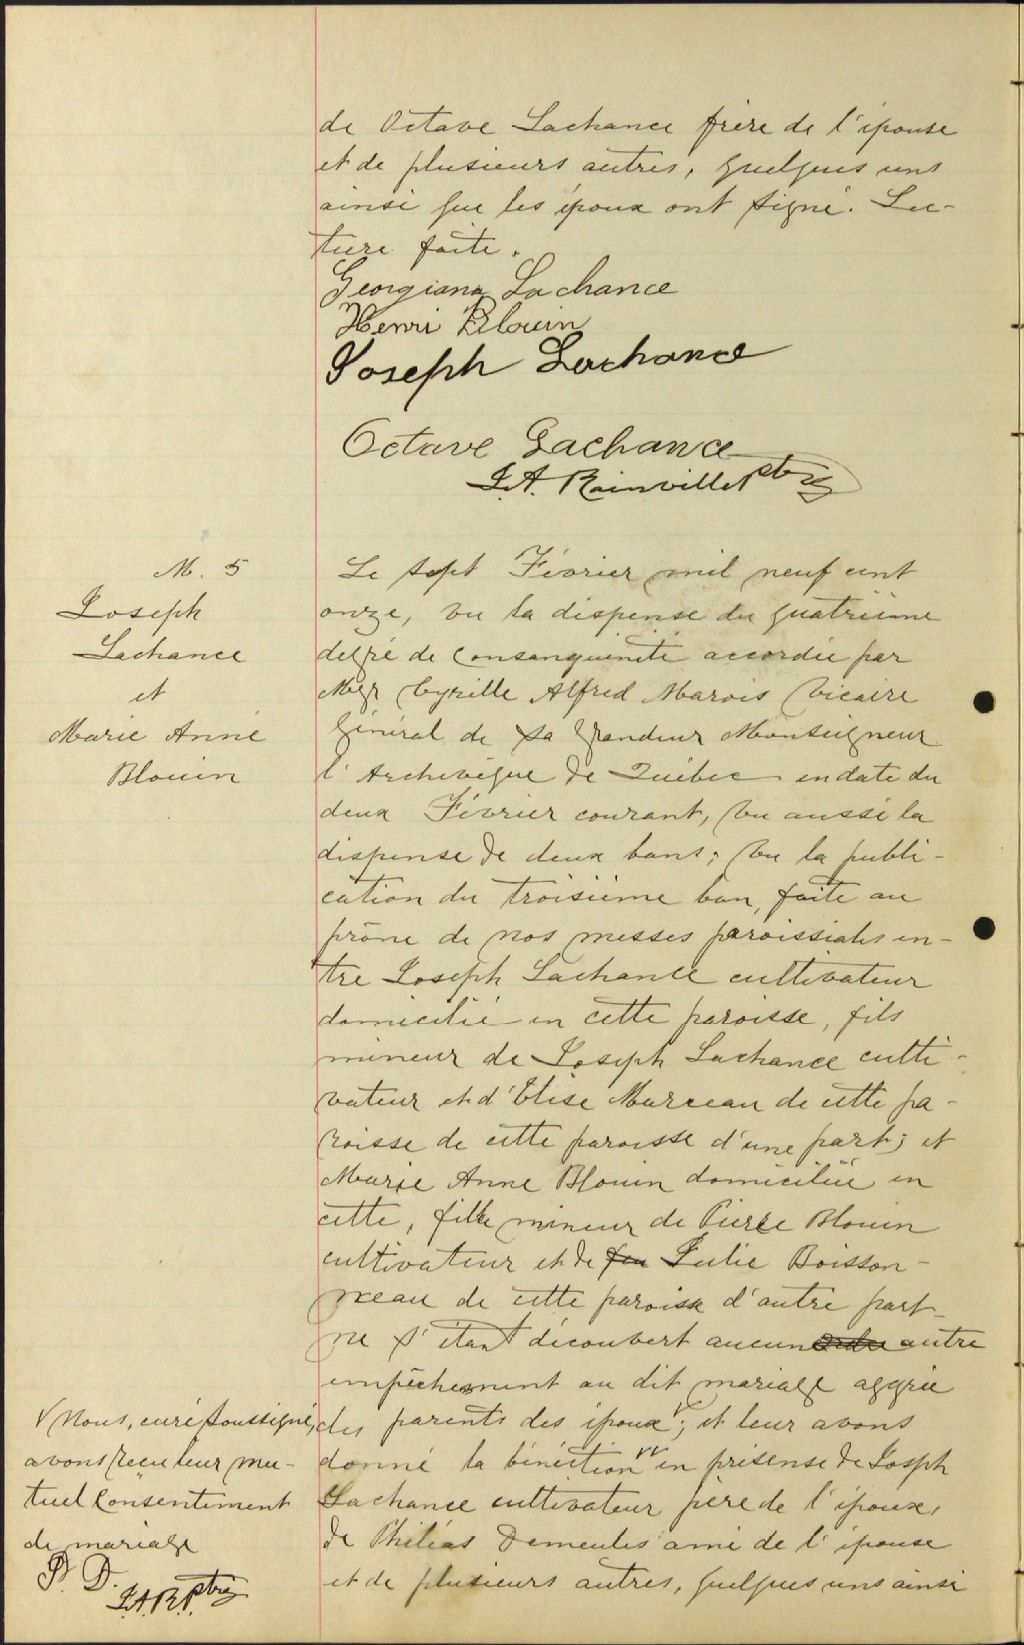 de Octave Lachance frère de l'épouse
et de plusieurs autres, quelques uns
ainsi que les époux ont signé. Lec-
ture faite.
Georgiana Lachance
Henri Blouin
Joseph Lachance
Octave Lachance
J.A. Rainville ptre
M. 5
Joseph
Lachance
et
Marie Anne
Blouin
Le sept Février mil neuf cent
onze, vu la dispense du quatrième
degré de consanguinité accordée par
Mgr Cyrille Alfred Marois Vicaire
Général de Sa Grandeur Monseigneur
l'Archevêque de Québec en date du
deux Février courant, vu aussi la
dispense de deux bans; vu la publi-
cation du troisième ban, faite au
prône de nos messes paroissiales en-
tre Joseph Lachance cultivateur
domicilié en cette paroisse, fils
mineur de Joseph Lachance culti-
vateur et d'Elise Marceau de cette pa-
roisse de cette paroisse d'une part; et
Marie Anne Blouin domiciliée en
cette, fille mineur de Pierre Blouin
cultivateur et de feu Julie Boisson-
neau de cette paroisse d'autre part
ne s'étant découvert aucun autre
empêchement au dit mariage aggrée
des parents des époux V; et leur avons
donné la bénéction VV en présense de Josph
Lachance cultivateur père de l'époux,
de Philias Demeules ami de l'épouse
et de plusieurs autres, quelques uns ainsi
V Nous, curé soussigné,
avons reçu leur mu-
tuel consentiment
de mariage
P. D.
J.A.R. ptre